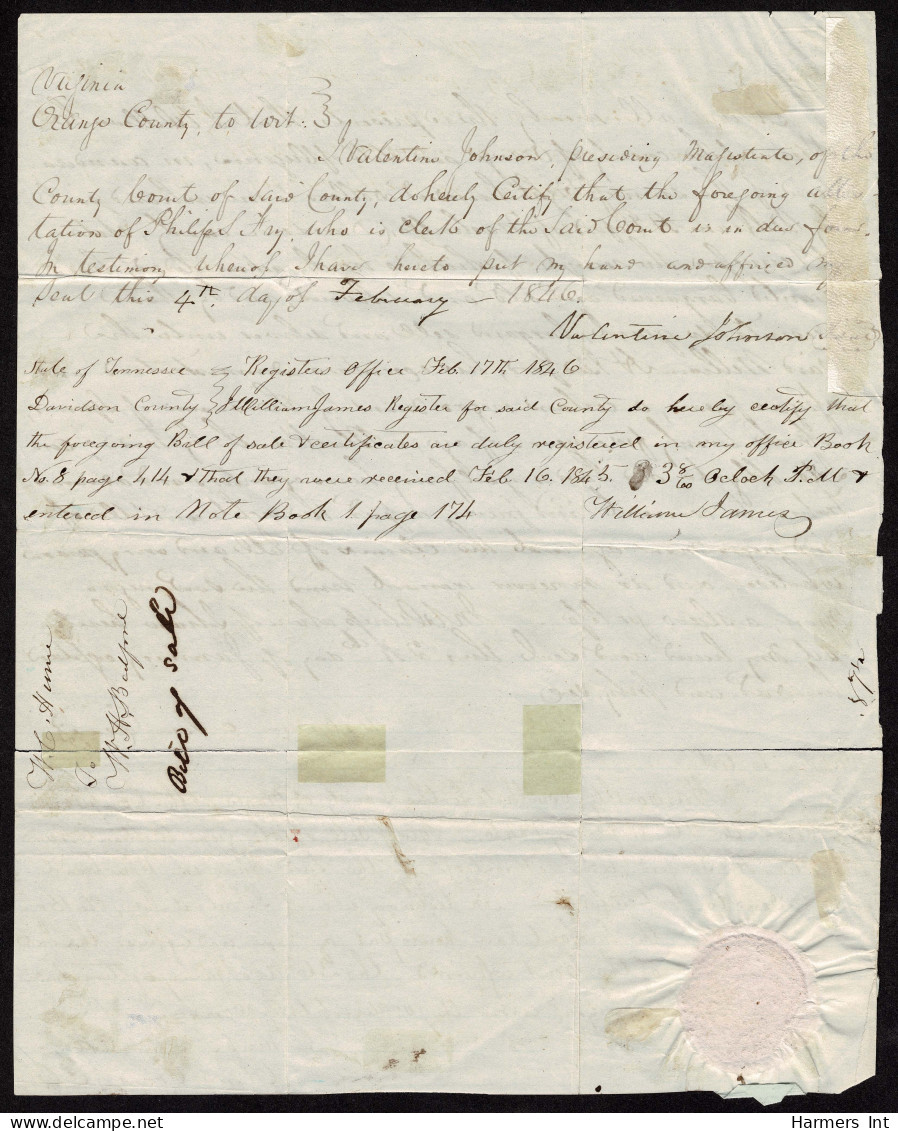 Virginia
Orange County, to wit:
I Valentine Johnson, presiding Magistrate, of the
County Court of Said County, do hereby Certify that the foregoing attes
tation of Philip S Fry, who is clerk of the Said Court is in due form.
In testimony whereof I have hereto put my hand and affixed my
Seal this 4th day of February – 1846.
Valentine Johnson
State of Tennessee Registers Office Feb. 17th 1846
Davidson County I William James Register for said County do hereby certify that
the foregoing Bill of sale & certificates are duly registered in my office Book
No. 8 page 414 & that they were received Feb. 16. 1845. 3 Oclock P. M &
entered in Note Book 1. page 174 William James
To
Bill of sale
Harmers Int